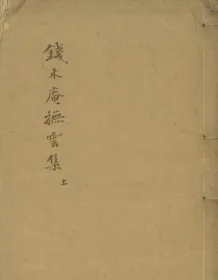 錢木庵撫雲集 上